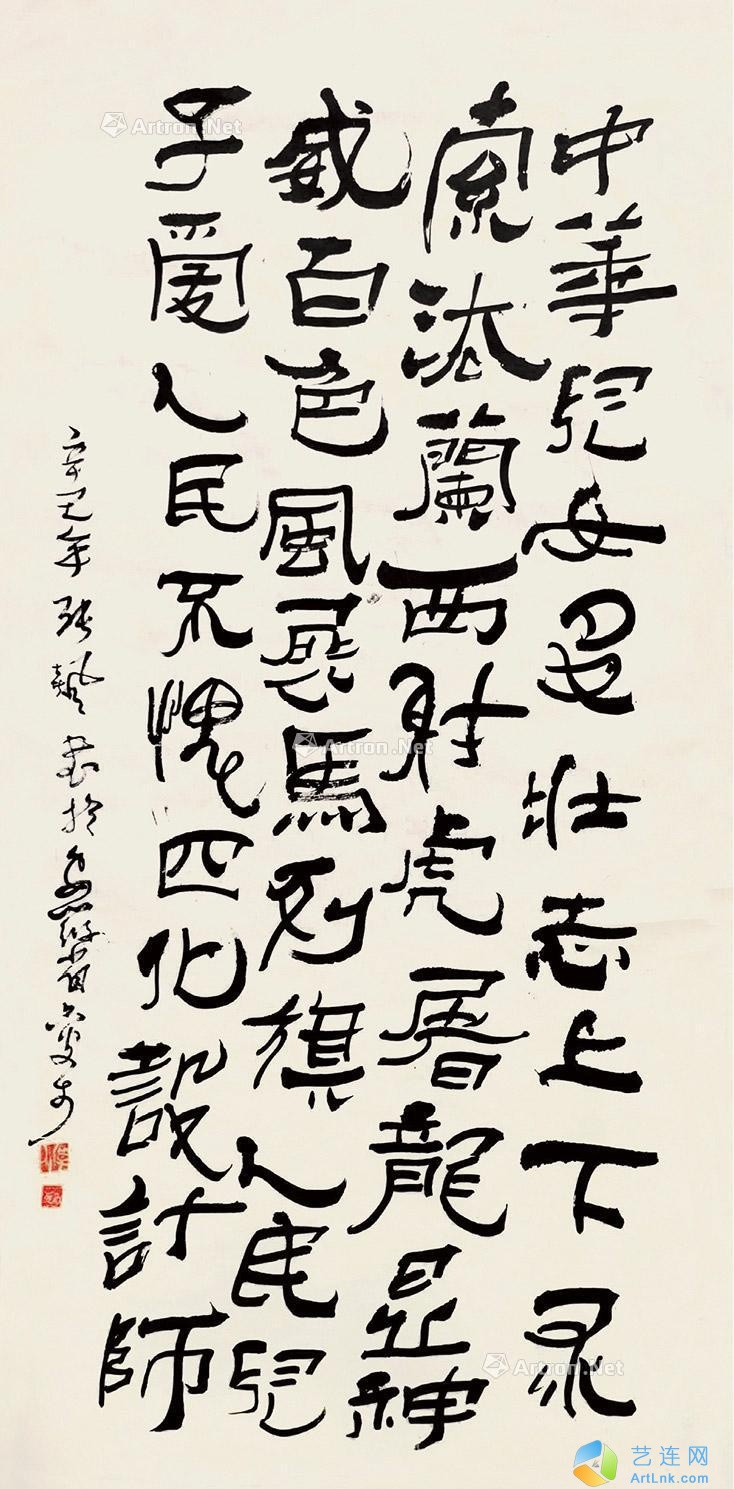 中華兒女多壯志上下求
索法蘭西射虎屠龍显神
威百色風展馬列旗人民兒
子愛人民不愧四化設計師
辛巳年張飆書於
Artron.Net
Artron.Net
Artron.Net
艺连网
ArtLnk.com